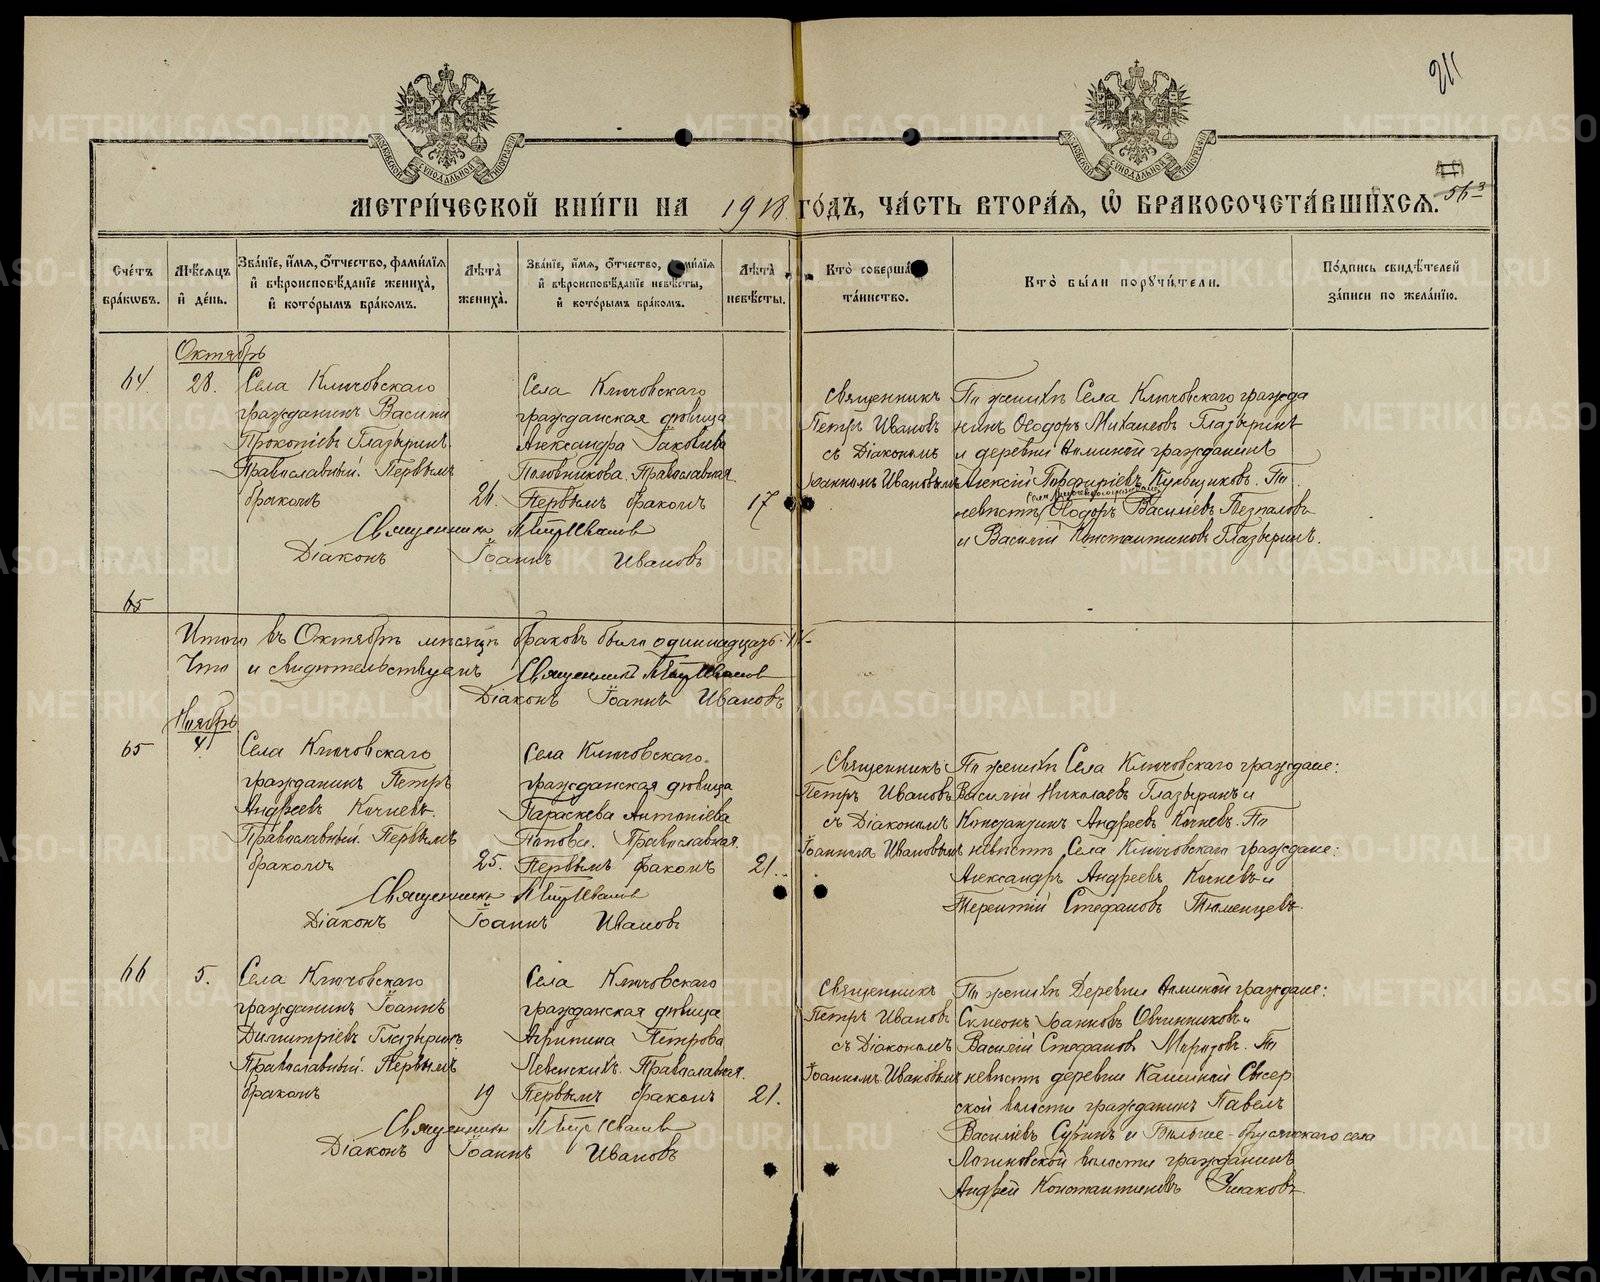 211
563
МОСКОВСКОЙ СѴНОДАЛЬНОЙ ТИПОГРАФІИ
МОСКОВСКОЙ СѴНОДАЛЬНОЙ ТИПОГРАФІИ
МЕТРИ́ЧЕСКОЙ КНИ́ГИ НА 1918 ГО́ДЪ, ЧА́СТЬ ВТОРА́Я, Ѡ҆ БРАКОСОЧЕТА́ВШИХСЯ.
Сче́тъ бра́кѡвъ.
Мѣ́сяцъ и҆ де́нь.
Зва́нїе, и҆́мя, ѻ҆́тчество, фами́лїя и҆ вѣроисповѣ́данїе жениха̀, и҆ кото́рымъ бра́комъ.
Лѣта̀ жениха̀.
Зва́нїе, и҆́мя, ѻ҆́тчество, фами́лїя и҆ вѣроисповѣ́данїе невѣ́сты, и҆ кото́рымъ бра́комъ.
Лѣта̀ невѣ́сты.
Кто̀ соверша́лъ та́инство.
Кто̀ бы́ли порꙋчи́тели.
По́дпись свидѣ́телей за́писи по жела́нїю.
Октябрь
64
28.
Села Ключовскаго
гражданинъ Василій
Прокопіевъ Глазыринъ.
Православный. Первымъ
бракомъ
26.
Села Ключовскаго
гражданская дѣвица
Александра Іаковлева
Половникова. Православная.
Первымъ бракомъ
17
Священникъ
Петръ Ивановъ
съ Діакономъ
Іоанномъ Ивановымъ
По женихѣ Села Ключовскаго гражда
нинъ Ѳеодоръ Михаиловъ Глазыринъ
и деревни гражданинъ
Алексій Порфиріевъ Кульщиковъ. По
невѣстѣ Ѳеодоръ Василіевъ Безпаловъ
и Василій Константиновъ Глазыринъ.
Священникъ П Ивановъ
Діаконъ Іоаннъ Ивановъ
65
Итого въ Октябрѣ мѣсяцѣ браковъ было одиннадцать. 11-
Что и свидѣтельствуемъ Священникъ П Ивановъ
Діаконъ Іоаннъ Ивановъ
Ноябрь
65
4
Села Ключовскаго
гражданинъ Петръ
Андреевъ Кочневъ.
Православный. Первымъ
бракомъ
25.
Села Ключовскаго
гражданская дѣвица
Параскева Антоніева
Попова. Православная.
Первымъ бракомъ
21.
Священникъ
Петръ Ивановъ
съ Діакономъ
Іоанномъ Ивановымъ
По женихѣ Села Ключовскаго граждане:
Василій Николаевъ Глазыринъ и
Константинъ Андреевъ Кочневъ. По
невѣстѣ Села Ключовскаго граждане:
Александръ Андреевъ Кочневъ и
Терентій Стефановъ Тюменцевъ.
Священникъ П Ивановъ
Діаконъ Іоаннъ Ивановъ
66
5.
Села Ключовскаго
гражданинъ Іоаннъ
Димитріевъ Глазыринъ
Православный. Первымъ
бракомъ
19
Села Ключовскаго
гражданская дѣвица
Агрипина Петрова
Левскихъ. Православная.
Первымъ бракомъ
21.
Священникъ
Петръ Ивановъ
съ Діакономъ
Іоанномъ Ивановымъ
По женихѣ Деревни граждане:
Симеонъ Іоанновъ Овчинниковъ и
Василій Стефановъ Морозовъ. По
невѣстѣ деревни Каменной Сысер
ской волости гражданинъ Павелъ
Василіевъ Суринъ и села
Логиновской волости гражданинъ
Андрей Константиновъ Ушаковъ.
Священникъ П Ивановъ
Діаконъ Іоаннъ Ивановъ
METRIKI.GASO-URAL.RU